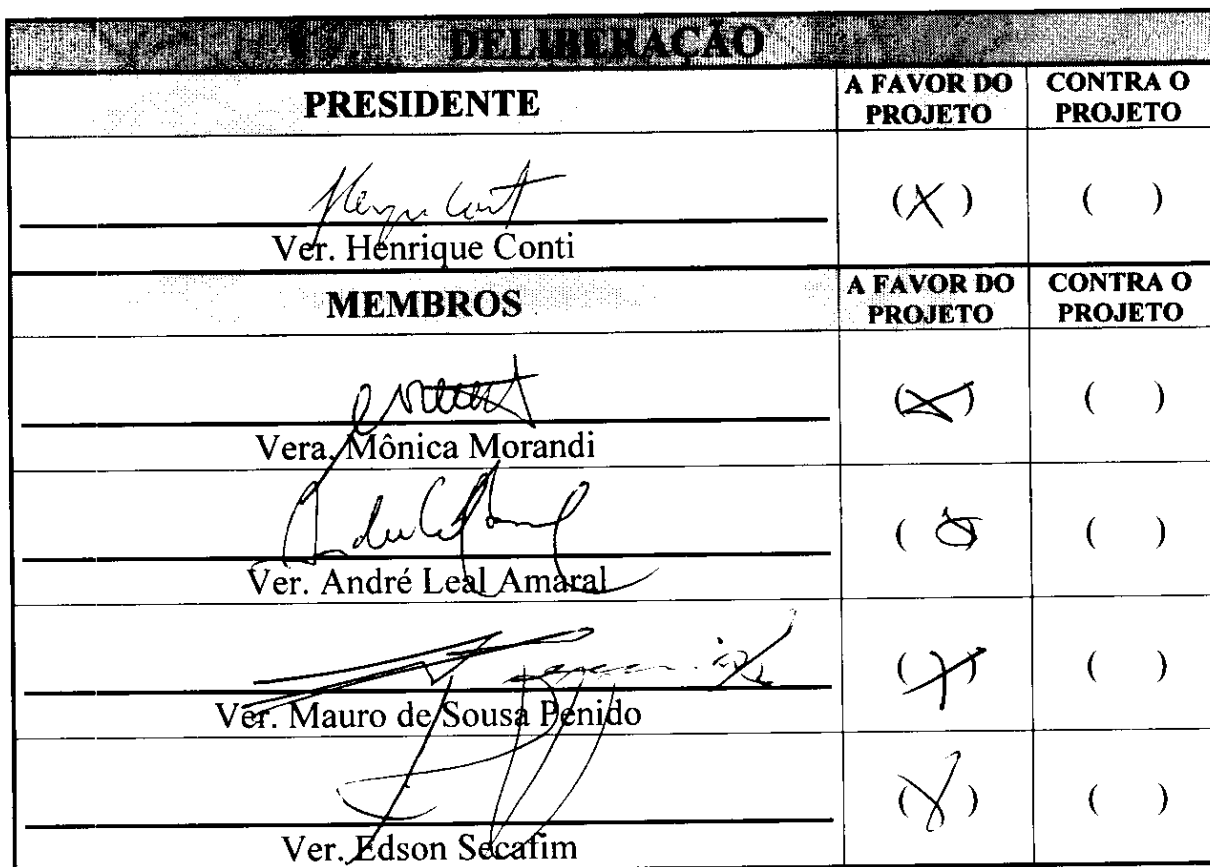 DELIBERAÇÃO
PRESIDENTE A FAVOR DO PROJETO CONTRA O PROJETO
(X) ( )
Ver. Henrique Conti
MEMBROS A FAVOR DO PROJETO CONTRA O PROJETO
(X) ( )
Vera. Mônica Morandi
( ) ( )
Ver. André Leal Amaral
(X) ( )
Ver. Mauro de Sousa Penido
(X) ( )
Ver. Edson Secafim